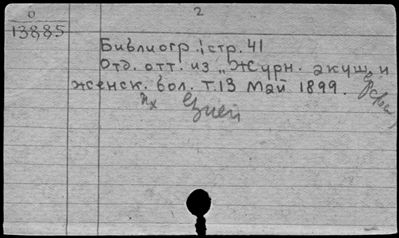 0
13885
2
Библиогр.: стр. 41
Отд. отт. из „Журн. акуш. и
женск. бол. Т.13 Май 1899.